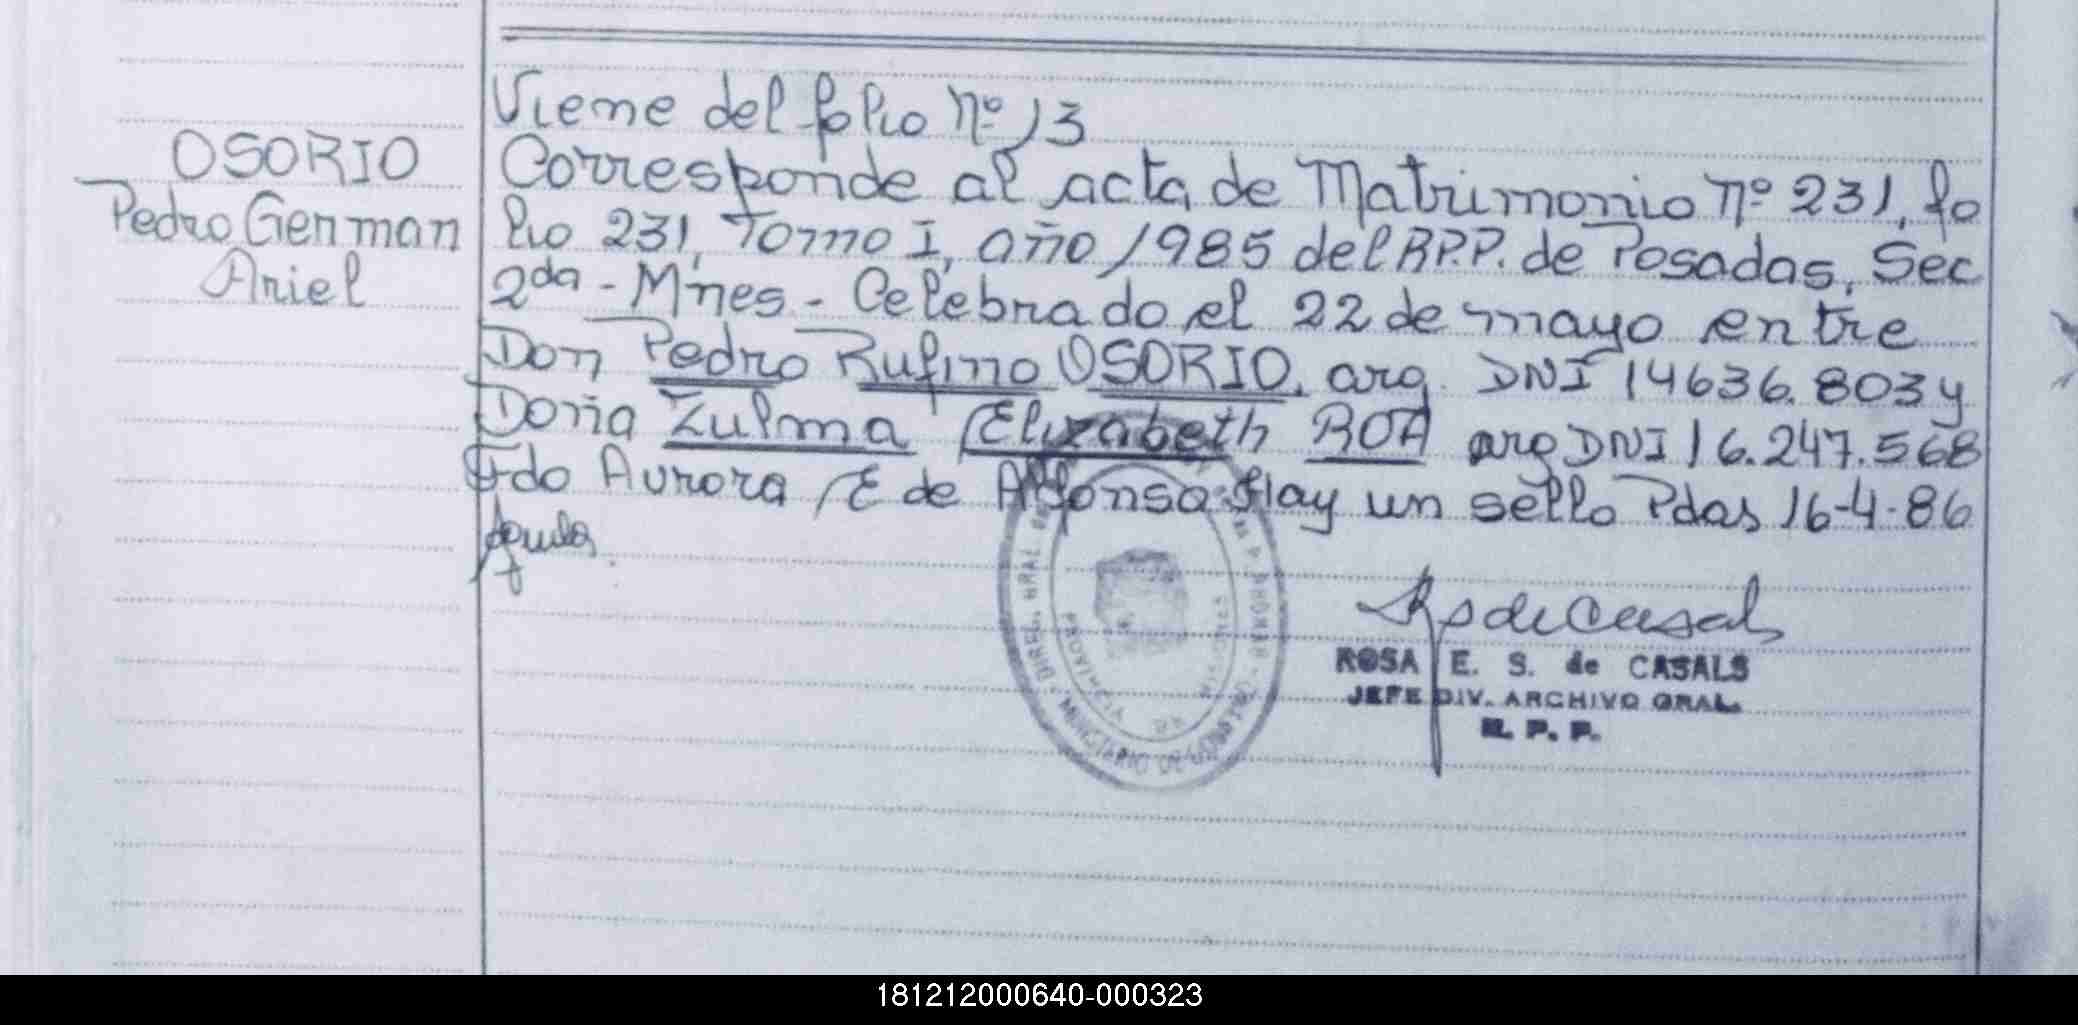 Viene del folio nº 13
OSORIO
Pedro German
Ariel
Corresponde al acta de Matrimonio nº 231, fo
lio 231, Tomo I, año 1985 del R.P.P. de Posadas, Sec
2da - Mnes - Celebrado el 22 de mayo entre
Don Pedro Rufino OSORIO, arg. DNI 14636.803 y
Doña Zulma Elizabeth ROA arg DNI 16.247.568
Fdo Aurora E de Alfonso Hay un sello Pdas 16-4-86
ROSA E. S. de CASALS
JEFE DIV. ARCHIVO GRAL.
R. P. P.
DIREC. GRAL.
MINISTERIO DE GOBIERNO
PROVINCIA DE MISIONES
181212000640-000323